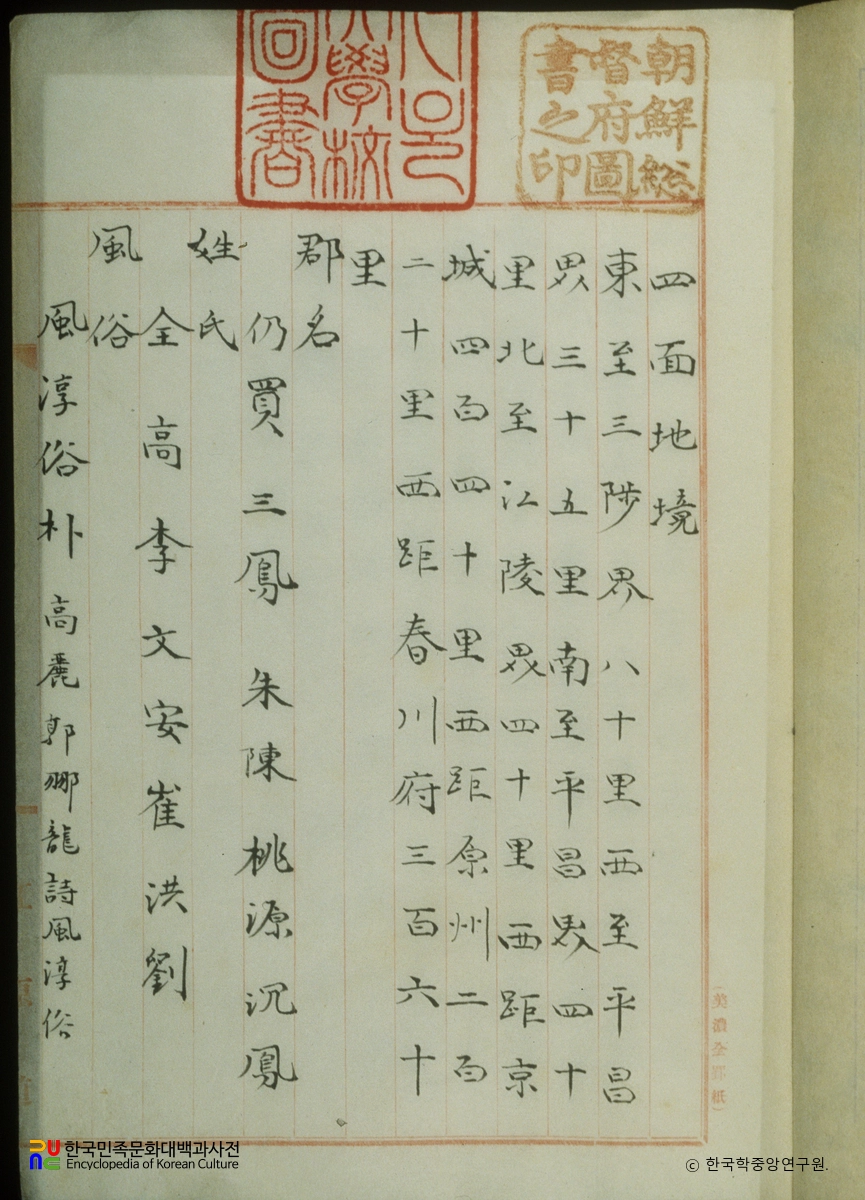 朝鮮総
督府圖
書之印
大學校
圖書
四面地境
東至三陟界八十里西至平昌
界三十五里南至平昌界四十
里北至江陵界四十里西距京
城四百四十里西距原州二百
二十里西距春川府三百六十
里
郡名
仍買 三鳳 朱陳 桃源 沉鳳
姓氏
全 高 李 文 安 崔 洪 劉
風俗
風淳俗朴 高麗郭珋龍詩風淳俗
(美濃全罫紙)
한국민족문화대백과사전
Encyclopedia of Korean Culture
ⓒ 한국학중앙연구원.